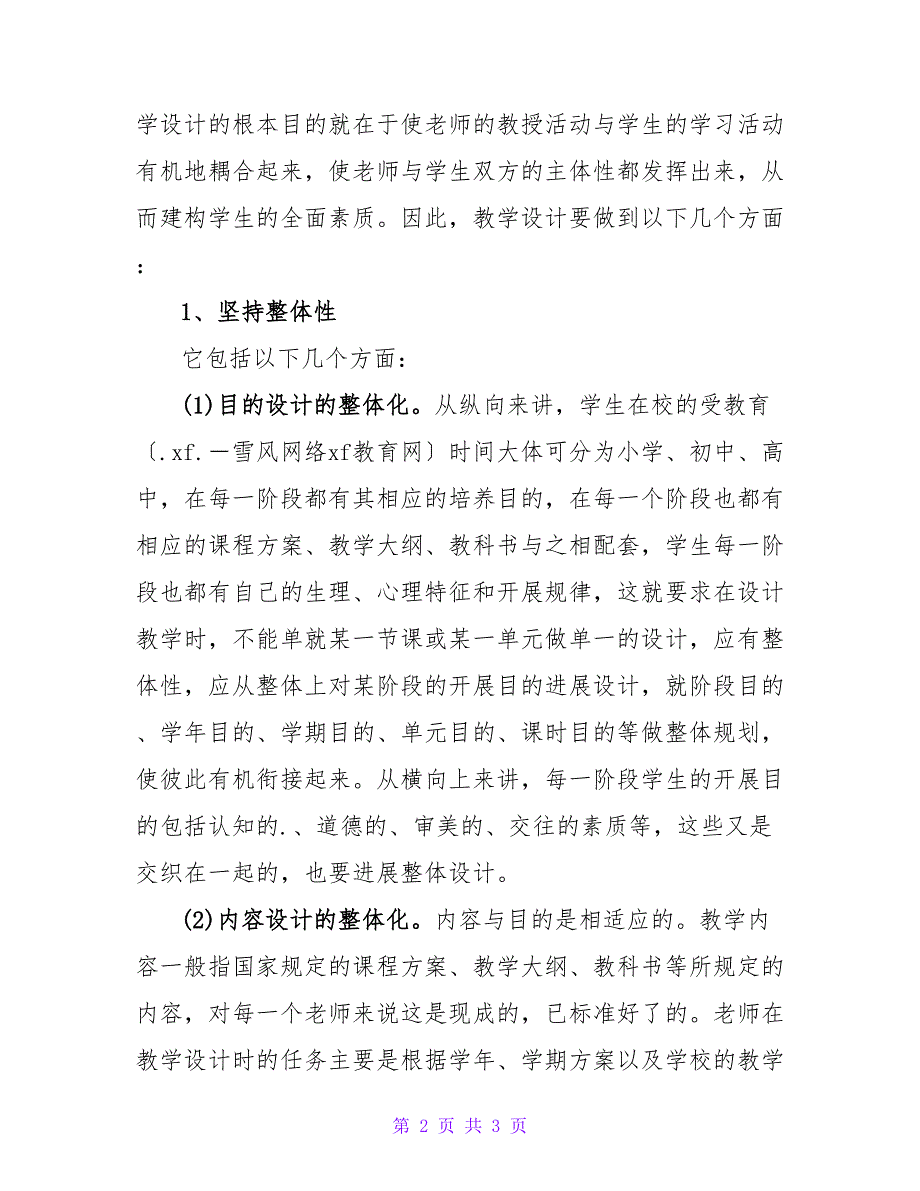 学设计的根本目的就在于使老师的教授活动与学生的学习活动
有机地耦合起来，使老师与学生双方的主体性都发挥出来，从
而建构学生的全面素质。因此，教学设计要做到以下几个方面
：
1、坚持整体性
它包括以下几个方面：
(1)目的设计的整体化。从纵向来讲，学生在校的受教育
〔.xf.－雪风网络xf教育网〕时间大体可分为小学、初中、高
中，在每一阶段都有其相应的培养目的，在每一个阶段也都有
相应的课程方案、教学大纲、教科书与之相配套，学生每一阶
段也都有自己的生理、心理特征和开展规律，这就要求在设计
教学时，不能单就某一节课或某一单元做单一的设计，应有整
体性，应从整体上对某阶段的开展目的进展设计，就阶段目的
、学年目的、学期目的、单元目的、课时目的等做整体规划，
使彼此有机衔接起来。从横向上来讲，每一阶段学生的开展目
的包括认知的.、道德的、审美的、交往的素质等，这些又是
交织在一起的，也要进展整体设计。
(2)内容设计的整体化。内容与目的是相适应的。教学内
容一般指国家规定的课程方案、教学大纲、教科书等所规定的
内容，对每一个老师来说这是现成的，已标准好了的。老师在
教学设计时的任务主要是根据学年、学期方案以及学校的教学
第 2 页 共 3 页